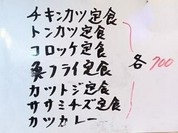 チキンカツ定食
トンカツ定食
コロッケ定食
魚フライ定食
カツトジ定食
ササミチーズ定食
カツカレー
各700